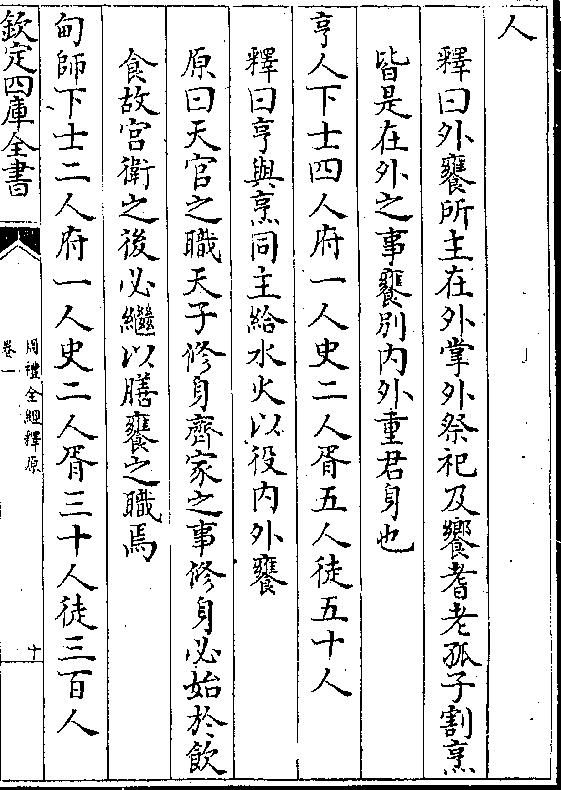 人
釋曰外饔所主在外掌外祭祀及饗耆老孤子割烹
皆是在外之事饔別内外重君身也
亨人下士四人府一人史二人胥五人徒五十人
釋曰亨與烹同主給水火以役内外饔
原曰天官之職天子修身齊家之事修身必始於飲
食故宮衛之後必繼以膳饔之職焉
甸師下士二人府一人史二人胥三十人徒三百人
欽定四庫全書
周禮全經釋原
卷一
十